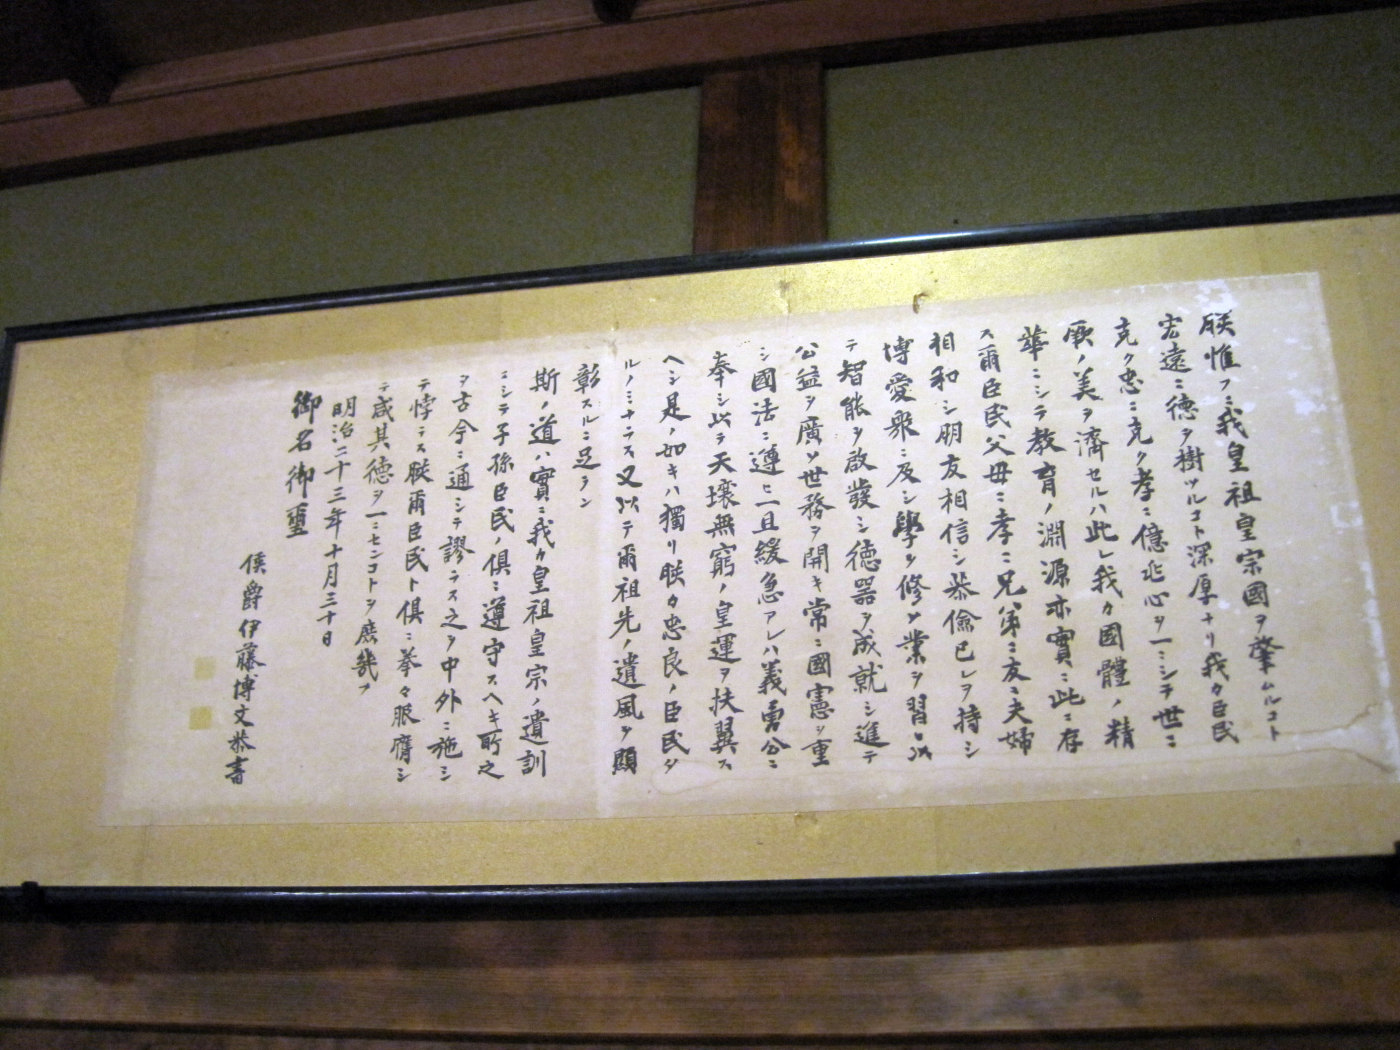 朕惟フニ我皇祖皇宗國ヲ肇ムルコト
宏遠ニ德ヲ樹ツルコト深厚ナリ我カ臣民
克ク忠ニ克ク孝ニ億兆心ヲ一ニシテ世ニ
厥ノ美ヲ濟セルハ此レ我カ國體ノ精
華ニシテ教育ノ淵源亦實ニ此ニ存
ス爾臣民父母ニ孝ニ兄弟ニ友ニ夫婦
相和シ朋友相信シ恭儉己レヲ持シ
博愛衆ニ及シ學ヲ修メ業ヲ習ヒ以
テ智能ヲ啟發シ德器ヲ成就シ進テ
公益ヲ廣メ世務ヲ開キ常ニ國憲ヲ重
シ國法ニ遵ヒ一旦緩急アレハ義勇公ニ
奉シ以テ天壤無窮ノ皇運ヲ扶翼ス
ヘシ是ノ如キハ獨リ朕カ忠良ノ臣民タ
ルノミナラス又以テ爾祖先ノ遺風ヲ顯
彰スルニ足ラン
斯ノ道ハ實ニ我カ皇祖皇宗ノ遺訓
ニシテ子孫臣民ノ俱ニ遵守スヘキ所之
ヲ古今ニ通シテ謬ラス之ヲ中外ニ施シ
テ悖ラス朕爾臣民ト俱ニ拳々服膺シ
テ咸其德ヲ一ニセンコトヲ庶幾フ
明治二十三年十月三十日
御名御璽
侯爵伊藤博文恭書